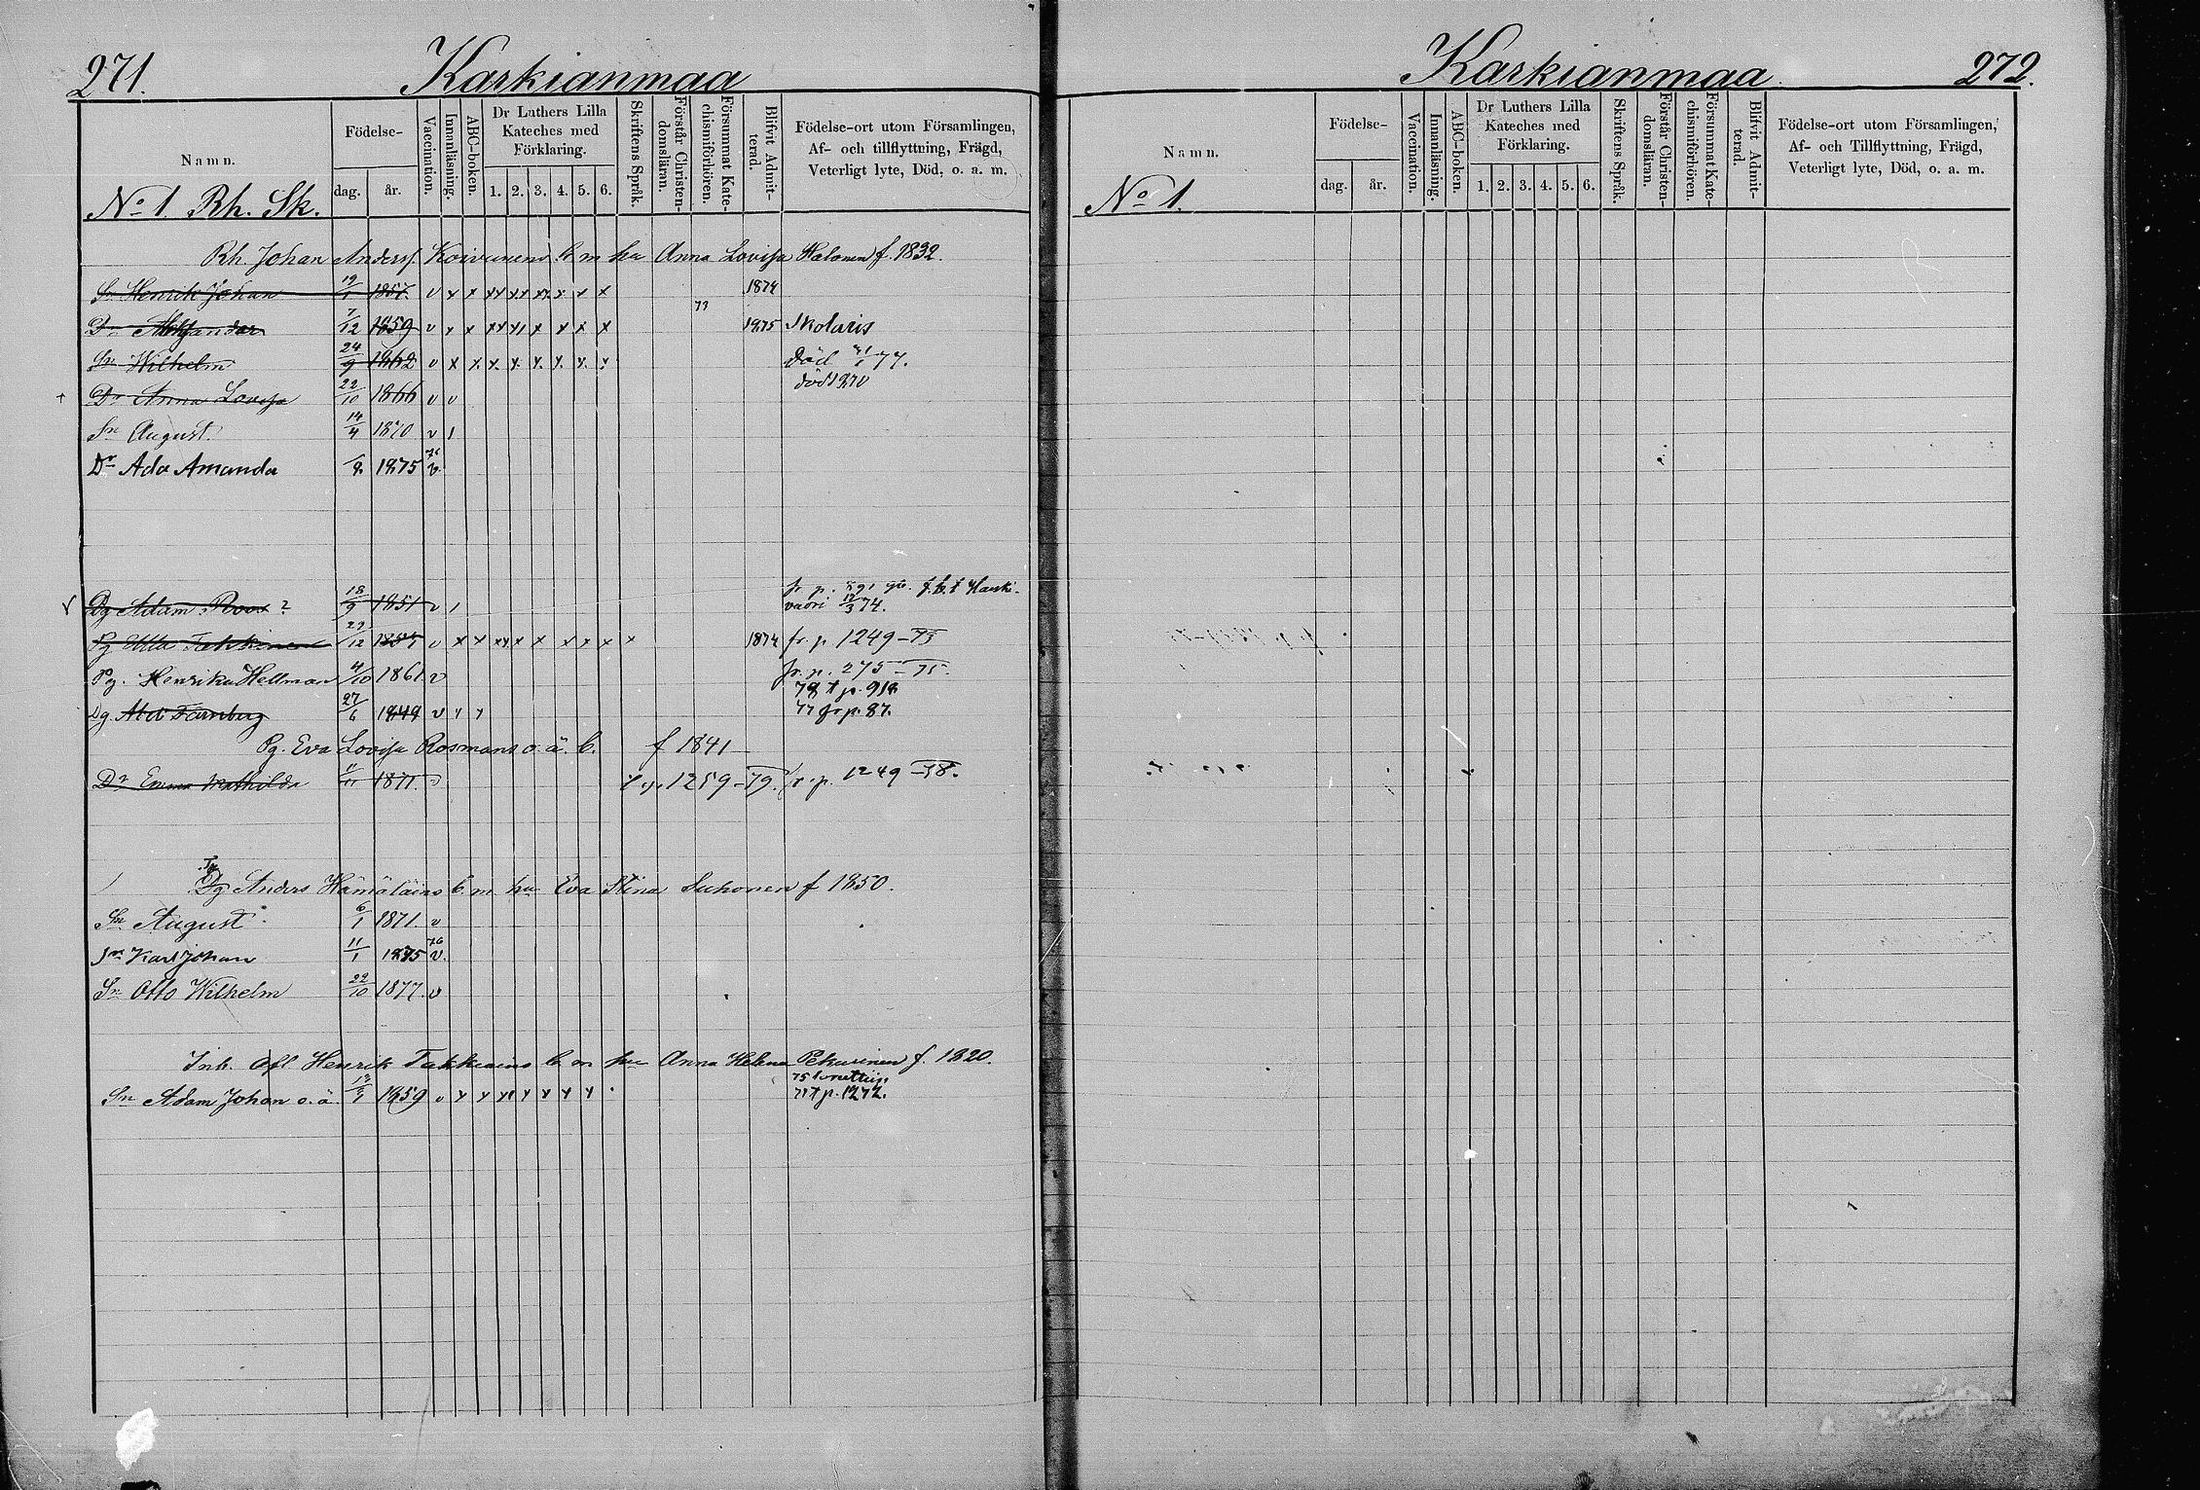 271. Karkianmaa
Namn.
Födelse-
dag. år.
Vaccination.
Innanläsning.
ABC-boken.
Dr Luthers Lilla Kateches med Förklaring.
1. 2. 3. 4. 5. 6.
Skriftens Språk.
Förstår Christendomsläran.
Försummat Katechismiförhören.
Blifvit Admitterad.
Födelse-ort utom Församlingen, Af- och tillflyttning, Frägd, Veterligt lyte, Död, o. a. m.
No 1 Rh. Sk.
Rh. Johan Anderss. Koivunens b m hu Anna Lovisa Halonen f. 1832.
Sn Henrik Johan 19/1 1857. v x x xx xx xx x x x 1874
73
Dr 7/12 1859 v x x x x x x 1875 Skolaris
Sn Wilhelm 24/9 1862 v x x x x x x x död 77.
Dr Anna Lovisa 22/10 1866 v v död 1870
Sn August. 14/4 1870 v 1
Dr Ada Amanda /8 1875 v.
Dg Adam ? 18/9 1851 v 1 fr p. 12/3 74.
Pg Ulla Takkinen 29/12 v x x xx x x x x x x 1874 fr. p. 1249-73
Pg. Henrika Hellman 4/10 1861 v fr. p. 275-75.
78 t p. 918
Dg. 27/6 1849 v x x 77 fr p. 87.
Pg. Eva Lovisa Rosmans o. ä. b. f 1841
Dr Emma Mathilda /11 1871. v t p. 1259-79. fr. p. 1249-78.
Dg Anders Hämäläins b. m. hu Eva Stina Suhonen f 1850.
Sn August. 6/1 1871. v
Sn Karl Johan 11/1 1875 v. 76
Sn Otto Wilhelm 22/10 1877. v
Inh. Afl Henrik Takkinens b m hu Anna Helena Pekurinen f. 1820.
Sn Adam Johan o. ä. 1859 v x x x x x x x 77 t p. 1272.
Karkianmaa 272.
Namn.
Födelse-
dag. år.
Vaccination.
Innanläsning.
ABC-boken.
Dr Luthers Lilla Kateches med Förklaring.
1. 2. 3. 4. 5. 6.
Skriftens Språk.
Förstår Christendomsläran.
Försummat Katechismiförhören.
Blifvit Admitterad.
Födelse-ort utom Församlingen, Af- och Tillflyttning, Frägd, Veterligt lyte, Död, o. a. m.
No 1.